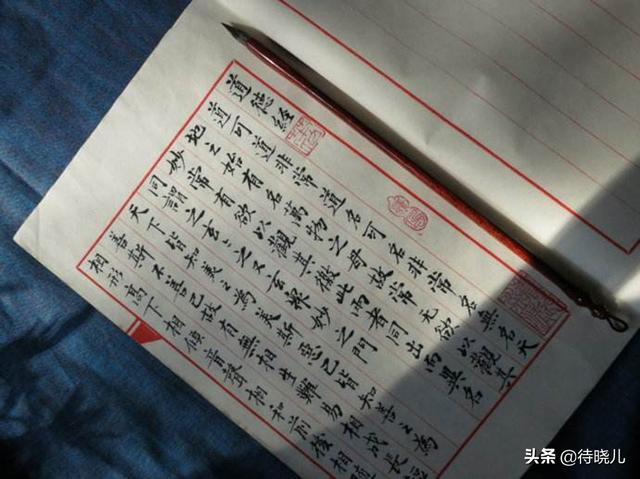 道德經
道可道非常道名可名非常名無名天
地之始有名萬物之母故常无欲以觀其
妙常有欲以觀其徼此兩者同出而異名
同謂之玄〻之又玄眾妙之門
天下皆知美之為美斯惡已皆知善之為
善斯不善已故有無相生難易相成長
相形高下相傾音聲相和前後相隨
头条 @待晓儿